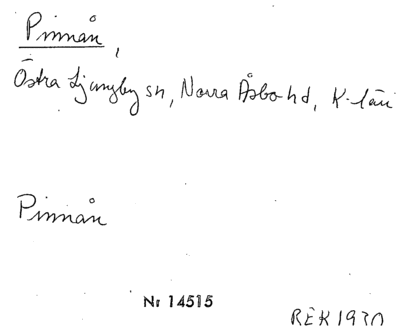 Pinnån,
Östra Ljungby sn, Norra Åsbo hd, K-län
Pinnån
Nr 14515
REK 1930